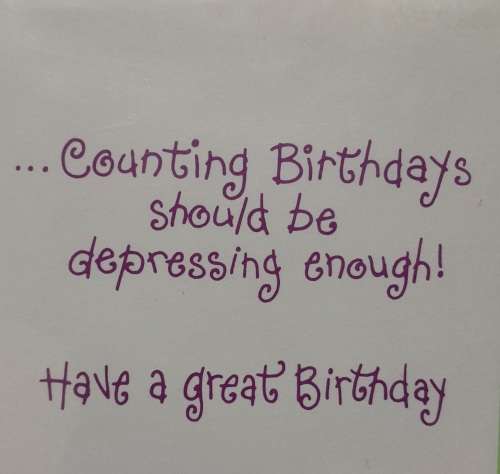 ...Counting Birthdays
should be
depressing enough!
Have a great Birthday